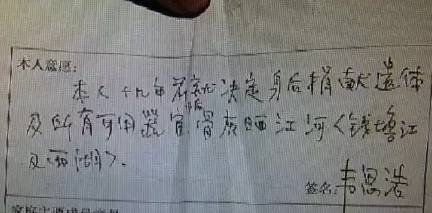 本人意愿：
本人十九年前就决定身后捐献遗体
及所有可用器官骨灰洒江河〈钱塘江
及西湖〉．
签名：韦思浩